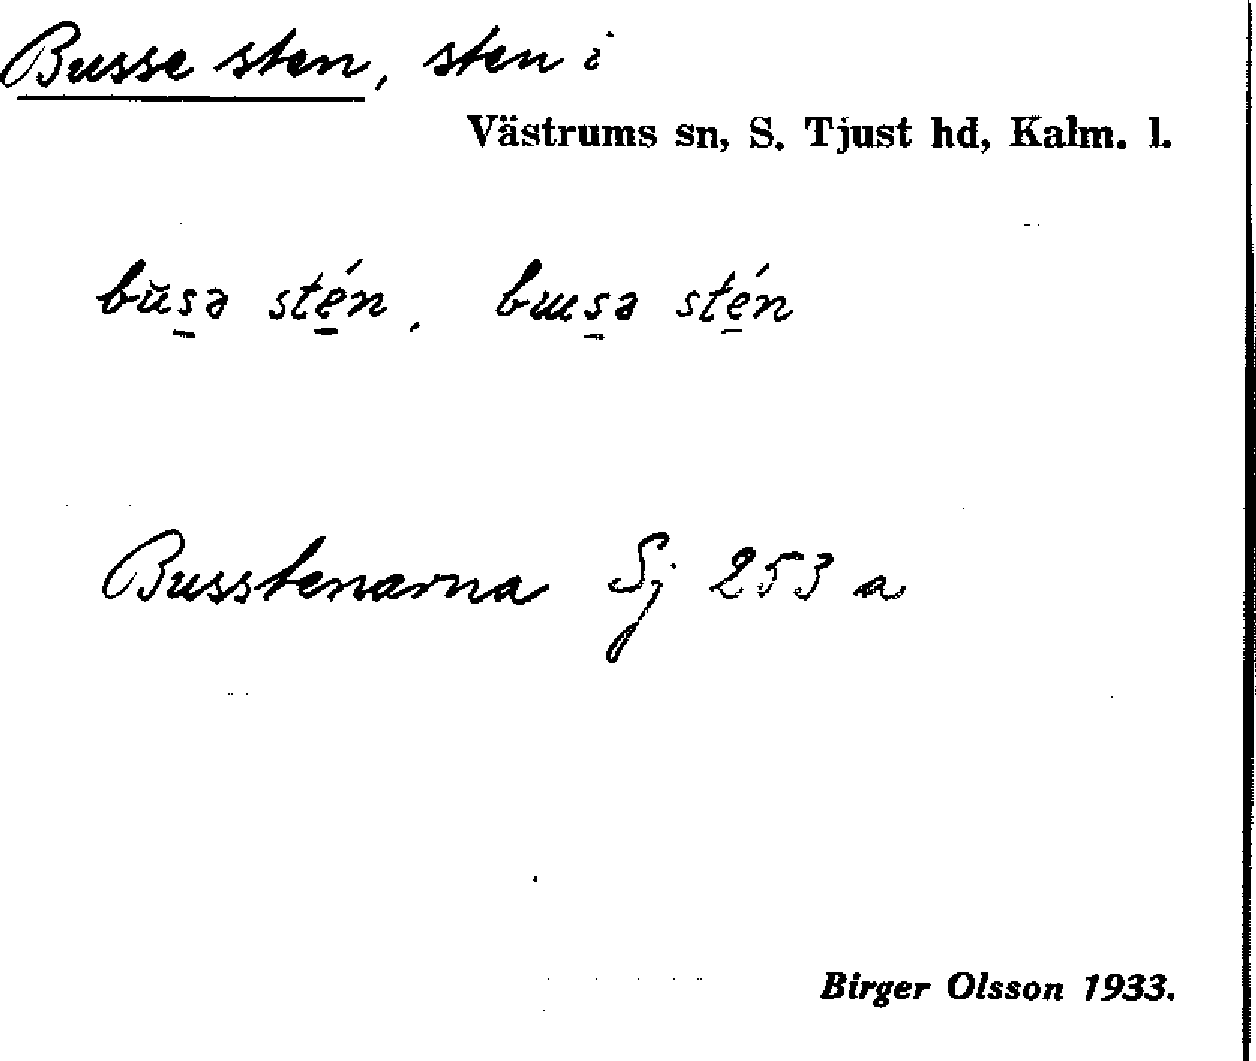 Busse sten, sten i
Västrums sn, S. Tjust hd, Kalm. l.
bŭs̱ə sté̱n. bɯs̱ə sté̱n
Busstenarna Sj 253 a
Birger Olsson 1933.